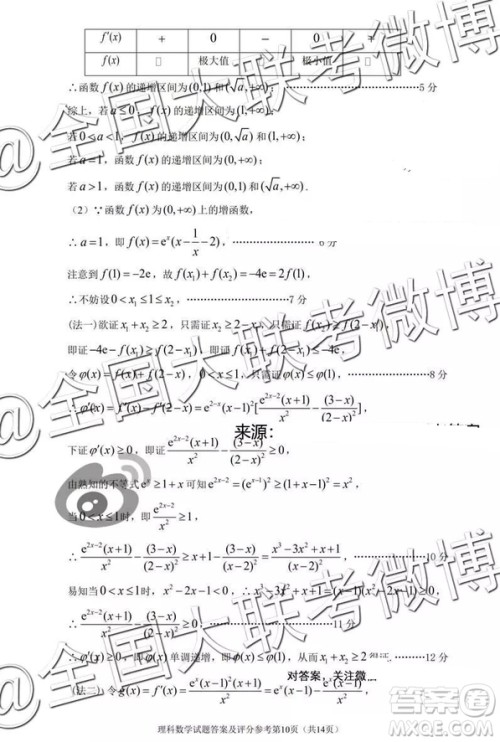 f′(x) + 0 − 0 +
f(x) 极大值 极小值
∴函数 f(x) 的递增区间为(0,1)和(√a,+∞); ……………5分
综上,若 a≤0,f(x)的递增区间为(1,+∞);
若 0<a<1,f(x)的递增区间为(0,√a)和(1,+∞);
若 a=1,函数 f(x)的递增区间为(0,+∞);
若 a>1,函数 f(x)的递增区间为(0,1)和(√a,+∞).
(2)∵函数 f(x)为(0,+∞)上的增函数,
∴ a=1,即 f(x)=eˣ(x−1/x−2), ……………6分
注意到 f(1)=−2e,故 f(x₁)+f(x₂)=−4e=2f(1),
∴不妨设 0<x₁≤1≤x₂, ……………7分
(法一)欲证 x₁+x₂≥2,只需证 x₂≥2−x₁,只需证 f(x₂)≥f(2−x₁),
即证 −4e−f(x₁)≥f(2−x₁),
令φ(x)=f(x)+f(2−x),0<x≤1,只需证φ(x)≤φ(1), ……………8分
∴φ′(x)=f′(x)−f′(2−x)=e²⁻ˣ(x−1)²[e²ˣ⁻²(x+1)/x²−(3−x)/(2−x)²],
来源:
下证φ′(x)≥0,即证 e²ˣ⁻²(x+1)/x²−(3−x)/(2−x)²≥0,
由熟知的不等式 eˣ≥1+x 可知 e²ˣ⁻²=(eˣ⁻¹)²≥(1+x−1)²=x²,
当 0<x≤1时,即 e²ˣ⁻²/x²≥1,
∴ e²ˣ⁻²(x+1)/x²−(3−x)/(2−x)²≥x+1−(3−x)/(2−x)²=(x³−3x²+x+1)/(2−x)², ……………10分
易知当 0<x≤1时,x²−2x−1<0,∴ x³−3x²+x+1=(x−1)(x²−2x−1)≥0,
∴ e²ˣ⁻²(x+1)/x²−(3−x)/(2−x)²≥0, ……………11分
∴φ′(x)≥0,即φ(x)单调递增,即φ(x)≤φ(1),从而 x₁+x₂≥2 ……12分
对答案,关注微
(法二)令 g(x)=f′(x)=eˣ(x−1)(x²+1)/x²
理科数学试题答案及评分参考第10页(共14页)
@全国大联考微博
@全国大联考微博